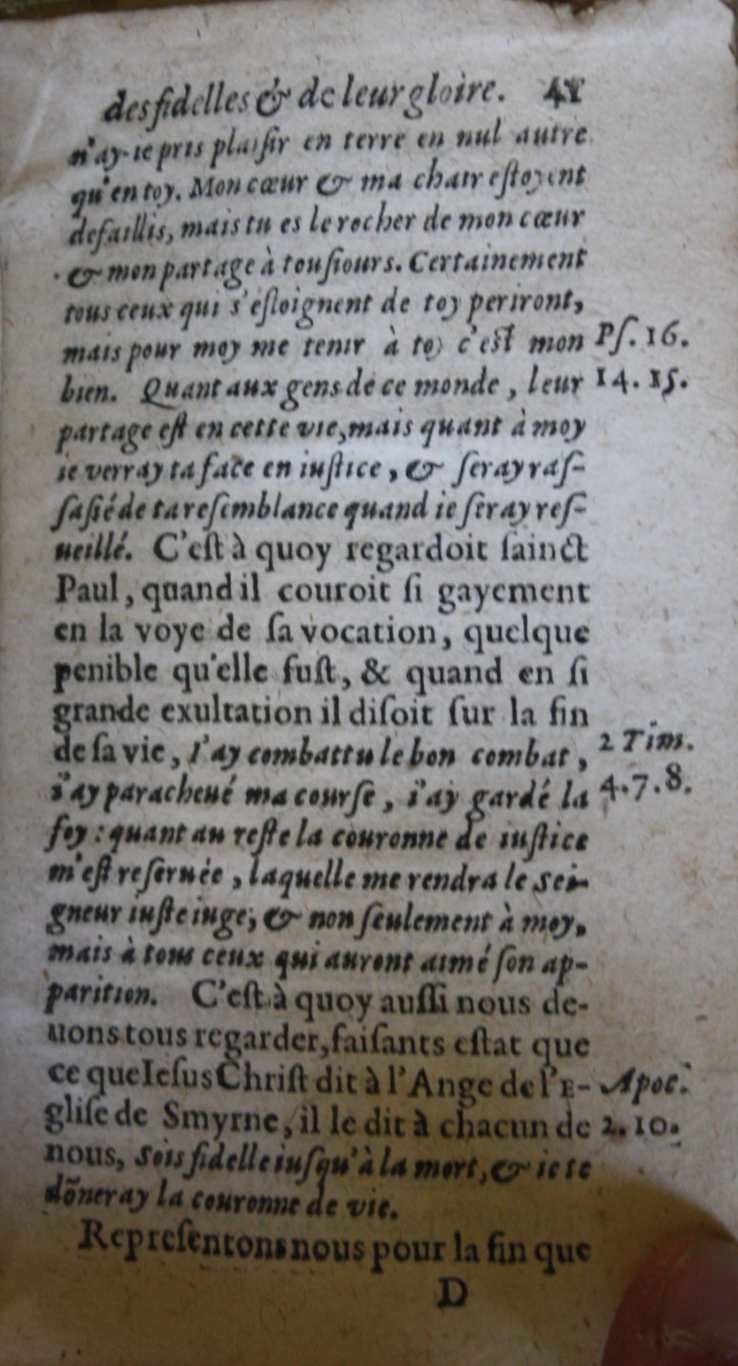 des fidelles & de leur gloire. 41
n'ay-ie pris plaisir en terre en nul autre
qu'en toy. Mon cœur & ma chair estoyent
defaillis, mais tu es le rocher de mon cœur
& mon partage à tousiours. Certainement
tous ceux qui s'esloignent de toy periront,
mais pour moy me tenir à toy c'est mon
bien. Quant aux gens de ce monde, leur
partage est en cette vie, mais quant à moy
ie verray ta face en iustice, & seray ras-
sasié de ta resemblance quand ie seray res-
ueillé. C'est à quoy regardoit sainct
Paul, quand il couroit si gayement
en la voye de sa vocation, quelque
penible qu'elle fust, & quand en si
grande exultation il disoit sur la fin
de sa vie, I'ay combattu le bon combat,
i'ay paracheué ma course, i'ay gardé la
foy : quant au reste la couronne de iustice
m'est reseruée, laquelle me rendra le Sei-
gneur iuste iuge, & non seulement à moy,
mais à tous ceux qui auront aimé son ap-
parition. C'est à quoy aussi nous de-
uons tous regarder, faisants estat que
ce que Iesus Christ dit à l'Ange de l'E-
glise de Smyrne, il le dit à chacun de
nous, Sois fidelle iusqu'à la mort, & ie te
dõneray la couronne de vie.
Representons nous pour la fin que
D
Ps. 16.
14. 15.
2 Tim.
4.7.8.
Apoc.
2. 10.